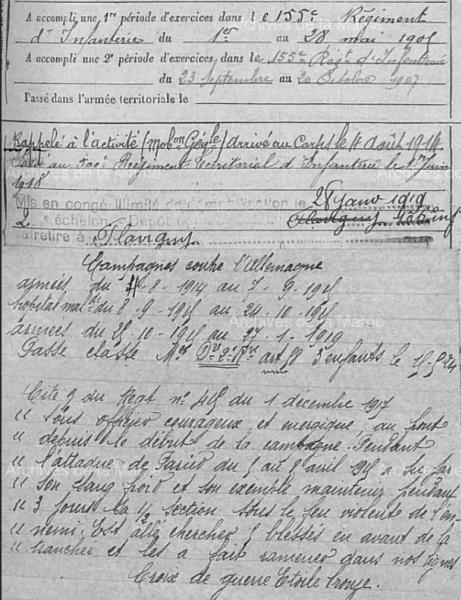 A accompli une 1re période d'exercices dans l e 155e Régiment
d'Infanterie du 1er au 28 mai 1905
A accompli une 2e période d'exercices, dans le 155e Régt d'Infanterie
du 23 Septembre au 20 Octobre 1907
Passé dans l'armée territoriale le
Rappelé à l'activité (Mobon Gégle) Arrivé au Corps le 4 Août 1914
au Régiment Territorial d'Infanterie le 1er Juin
1918
Mis en congé illimité de le 28 Janv 1919
2 échelon Dépôt
se retire à Flavigny
Campagnes contre l'Allemagne
armées du 4-8-1914 au 7-9-1915
hopital du 8-9-1915 au 24-10-1915
armées du 25-10-1915 au 27-1-1919
Passe classe art 3 enfants le
Cité O du Regt no 415 du 1 décembre 1917
" Sous officier courageux et énergique, au front
" depuis le début de la campagne. Pendant
" l'attaque de du 5 au 8 avril 1915 a su par
" son sang froid et son exemple maintenir pendant
" 3 jours la 1/2 section sous le feu violent de l'en
" nemi. Est allé chercher blessés en avant de la
" tranchée et les a fait ramener dans nos lignes
Croix de guerre Etoile bronze.
Archives de la Marne